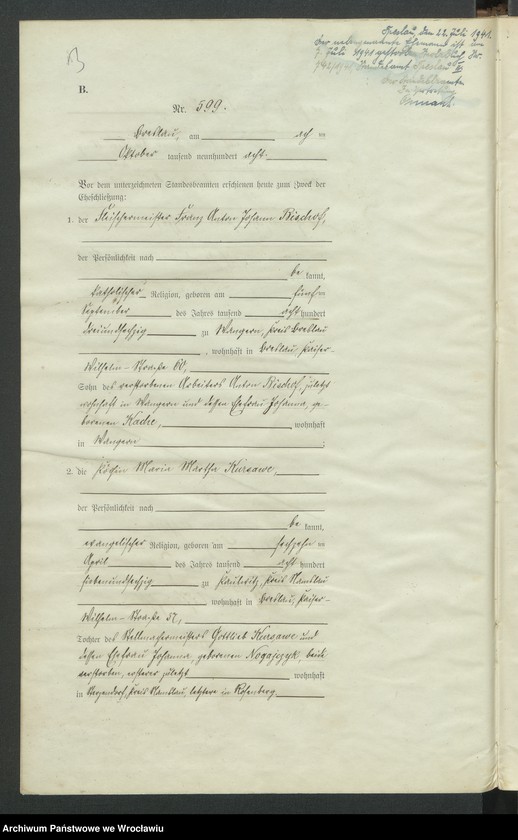 Breslau, den 22. Juli 1941.
Der nebengenannte Ehemann ist am
7. Juli 1941 gestorben Nr.
Standesamt Breslau II
Der Standesbeamte
In Vertretung
B.
Nr. 599.
Breslau, am ach ten
Oktober tausend neunhundert acht.
Vor dem unterzeichneten Standesbeamten erschienen heute zum Zweck der
Eheschließung:
1. der Fleischermeister Franz Anton Johann Bischof,
der Persönlichkeit nach
be kannt,
katholischer Religion, geboren am fünften
September des Jahres tausend acht hundert
dreiundsechzig zu Wangern, Kreis Breslau
, wohnhaft in Breslau, Kaiser-
Wilhelm-Straße 60,
Sohn des verstorbenen Arbeiters Anton Bischof, zuletzt
wohnhaft in Wangern und dessen Ehefrau Johanna, ge-
borenen Kache, wohnhaft
in Wangern.
2. die Köchin Maria Martha Kursawe,
der Persönlichkeit nach
be kannt,
evangelischer Religion, geboren am sechzehn ten
April des Jahres tausend acht hundert
siebenundsechzig zu Paulwitz, Kreis Namslau
wohnhaft in Breslau, Kaiser-
Wilhelm-Straße 57,
Tochter des Stellmachermeisters Gottlieb Kursawe und
dessen Ehefrau Johanna, geborenen Nogajczyk, beide
verstorben, ersterer zuletzt wohnhaft
in Kreis Namslau, letztere in Rosenberg
Archiwum Państwowe we Wrocławiu